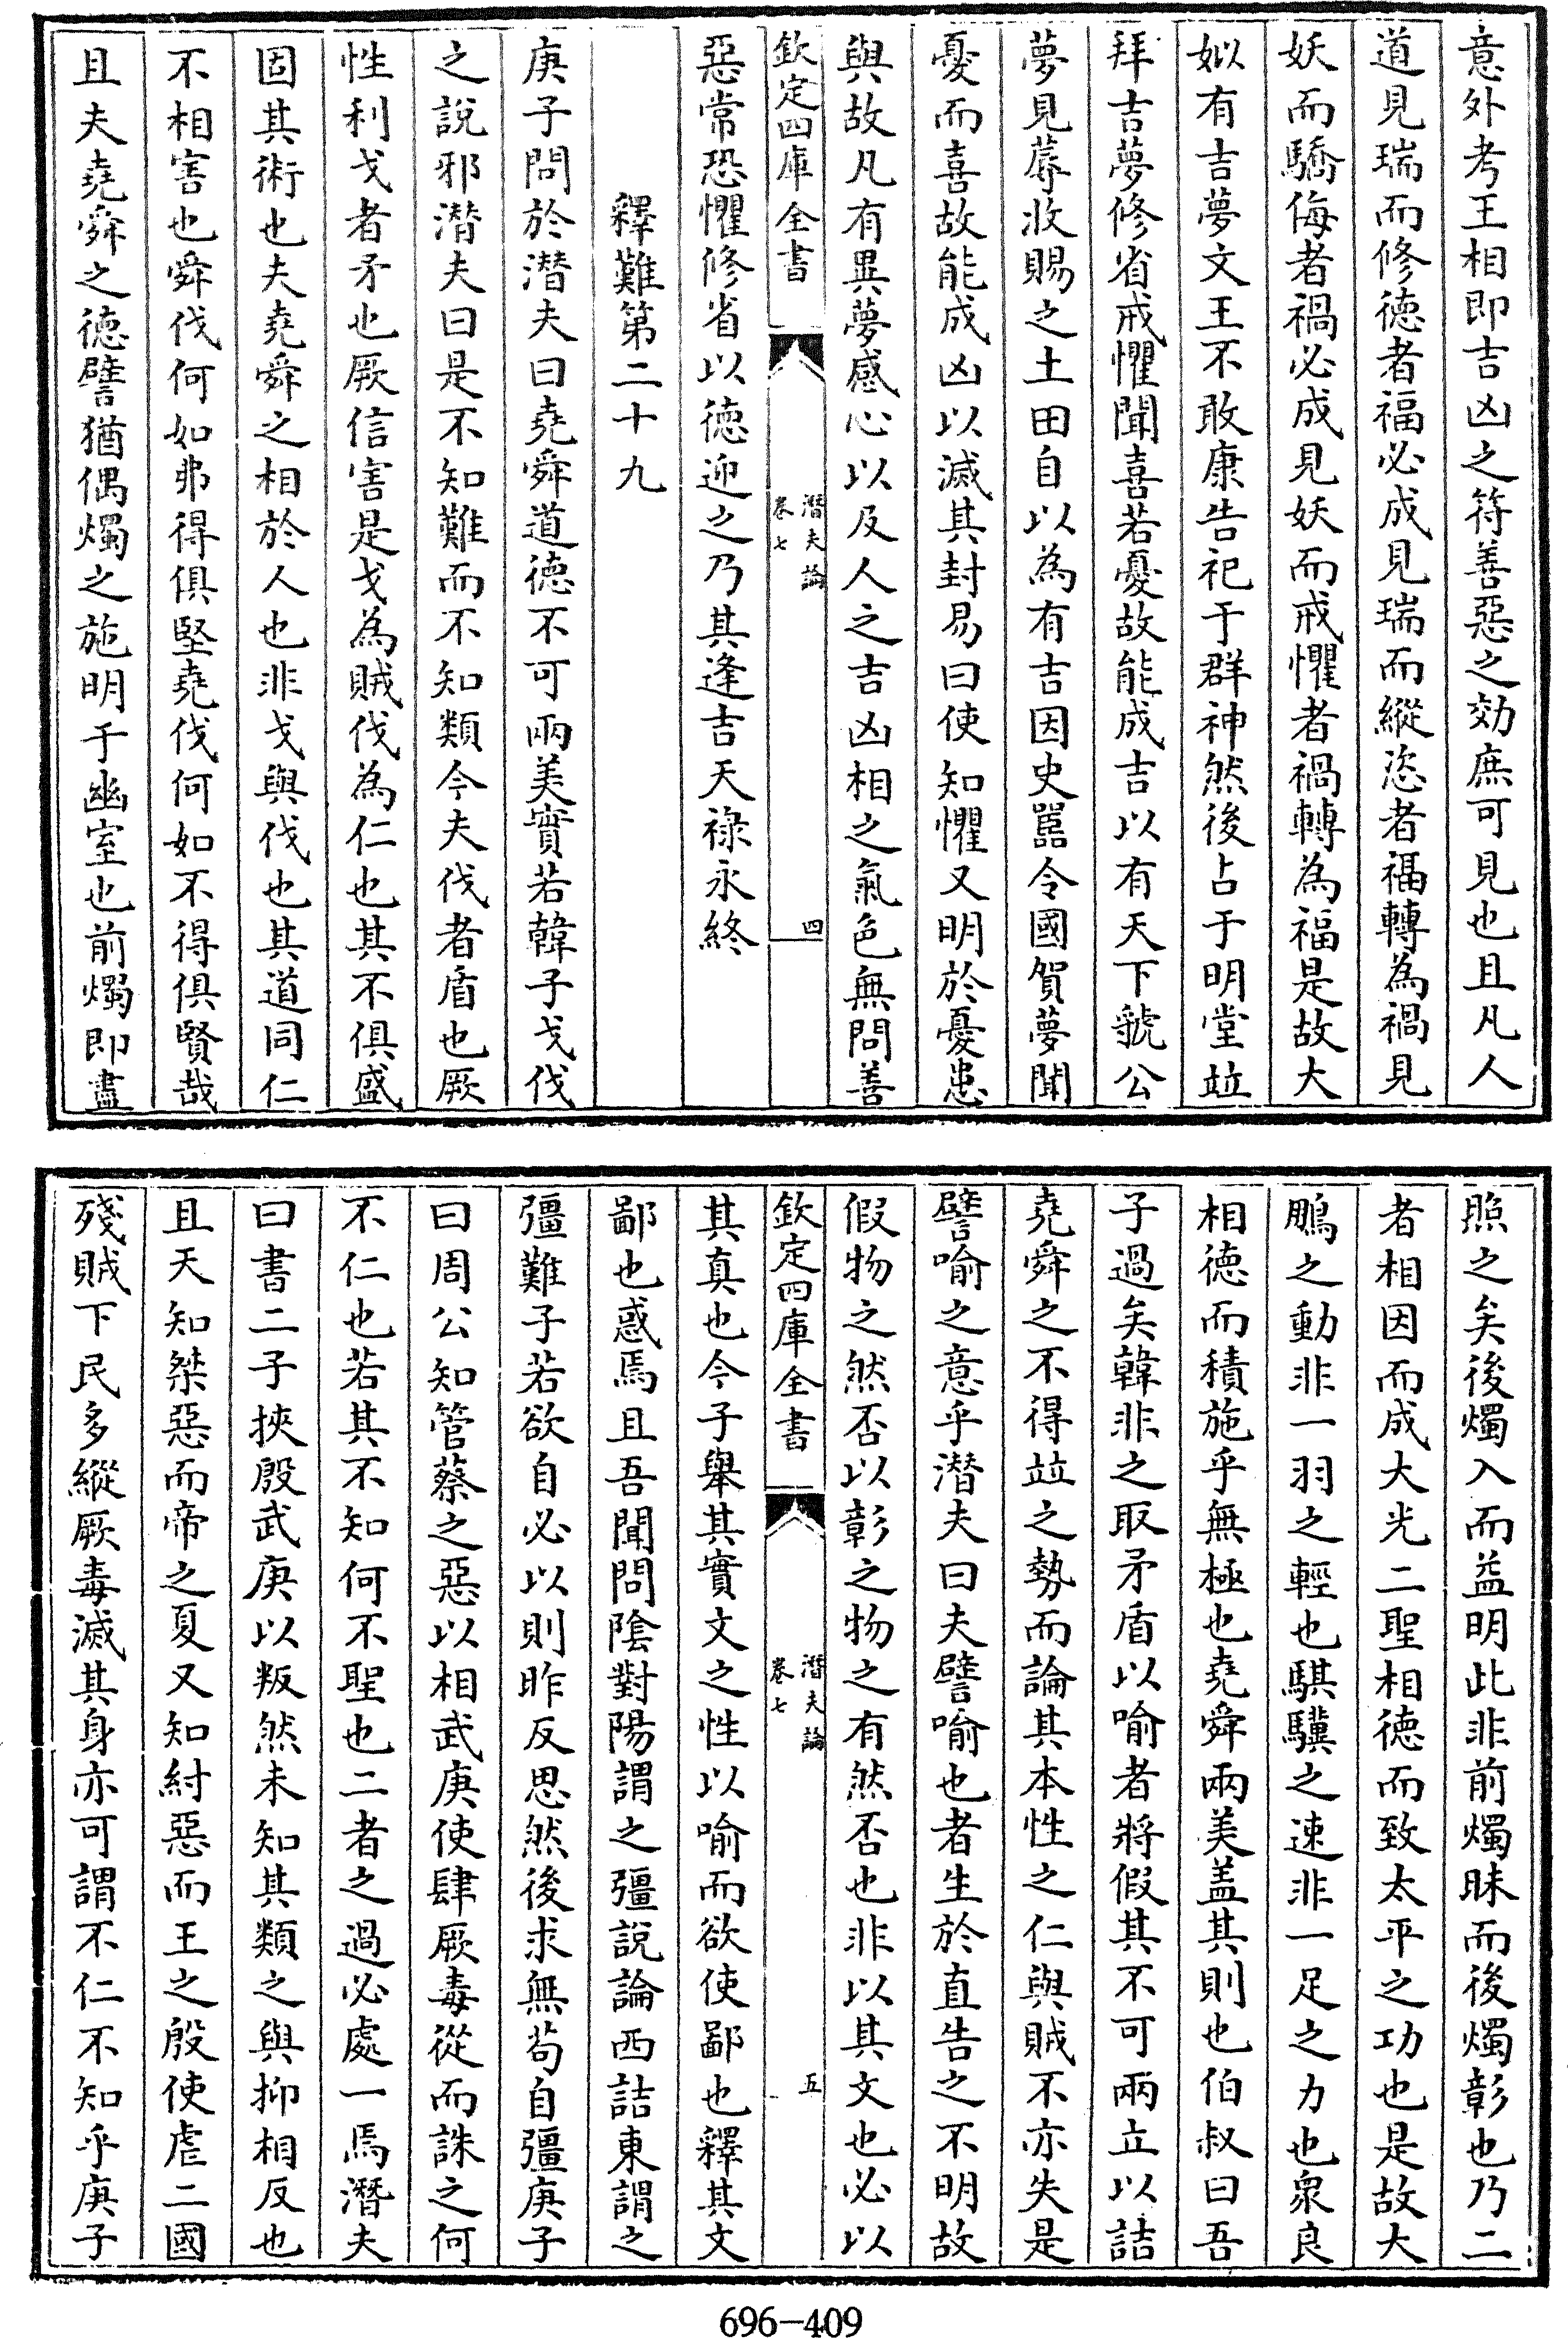 意外考王相即吉凶之符善惡之効庶可見也且凡人
道見瑞而修徳者福必成見瑞而縱恣者福轉為禍見
妖而驕侮者禍必成見妖而戒懼者禍轉為福是故大
姒有吉夢文王不敢康告祀于群神然後占于明堂竝
拜吉夢修省戒懼聞喜若憂故能成吉以有天下虢公
夢見蓐收賜之土田自以為有吉因史嚚令國賀夢聞
憂而喜故能成凶以滅其封易曰使知懼又明於憂患
與故凡有異夢感心以及人之吉凶相之氣色無問善
欽定四庫全書
潛夫論
卷七
四
惡常恐懼修省以徳迎之乃其逢吉天禄永終
釋難第二十九
庚子問於潛夫曰堯舜道徳不可兩美實若韓子戈伐
之説邪潛夫曰是不知難而不知類今夫伐者盾也厥
性利戈者矛也厥信害是戈為賊伐為仁也其不俱盛
固其術也夫堯舜之相於人也非戈與伐也其道同仁
不相害也舜伐何如弗得俱堅堯伐何如不得俱賢哉
且夫堯舜之徳譬猶偶燭之施明于幽室也前燭即盡
照之矣後燭入而益明此非前燭昧而後燭彰也乃二
者相因而成大光二聖相徳而致太平之功也是故大
鵬之動非一羽之輕也騏驥之速非一足之力也衆良
相德而積施乎無極也堯舜兩美盖其則也伯叔曰吾
子過矣韓非之取矛盾以喻者將假其不可兩立以詰
堯舜之不得竝之勢而論其本性之仁與賊不亦失是
譬喻之意乎潛夫曰夫譬喻也者生於直告之不明故
假物之然否以彰之物之有然否也非以其文也必以
欽定四庫全書
潛夫論
卷七
五
其真也今子舉其實文之性以喻而欲使鄙也釋其文
鄙也惑焉且吾聞問陰對陽謂之彊説論西詰東謂之
彊難子若欲自必以則昨反思然後求無苟自彊庚子
曰周公知管蔡之惡以相武庚使肆厥毒從而誅之何
不仁也若其不知何不聖也二者之過必處一焉潛夫
曰書二子挾殷武庚以叛然未知其類之與抑相反也
且天知桀惡而帝之夏又知紂惡而王之殷使虐二國
殘賊下民多縱厥毒滅其身亦可謂不仁不知乎庚子
696-409